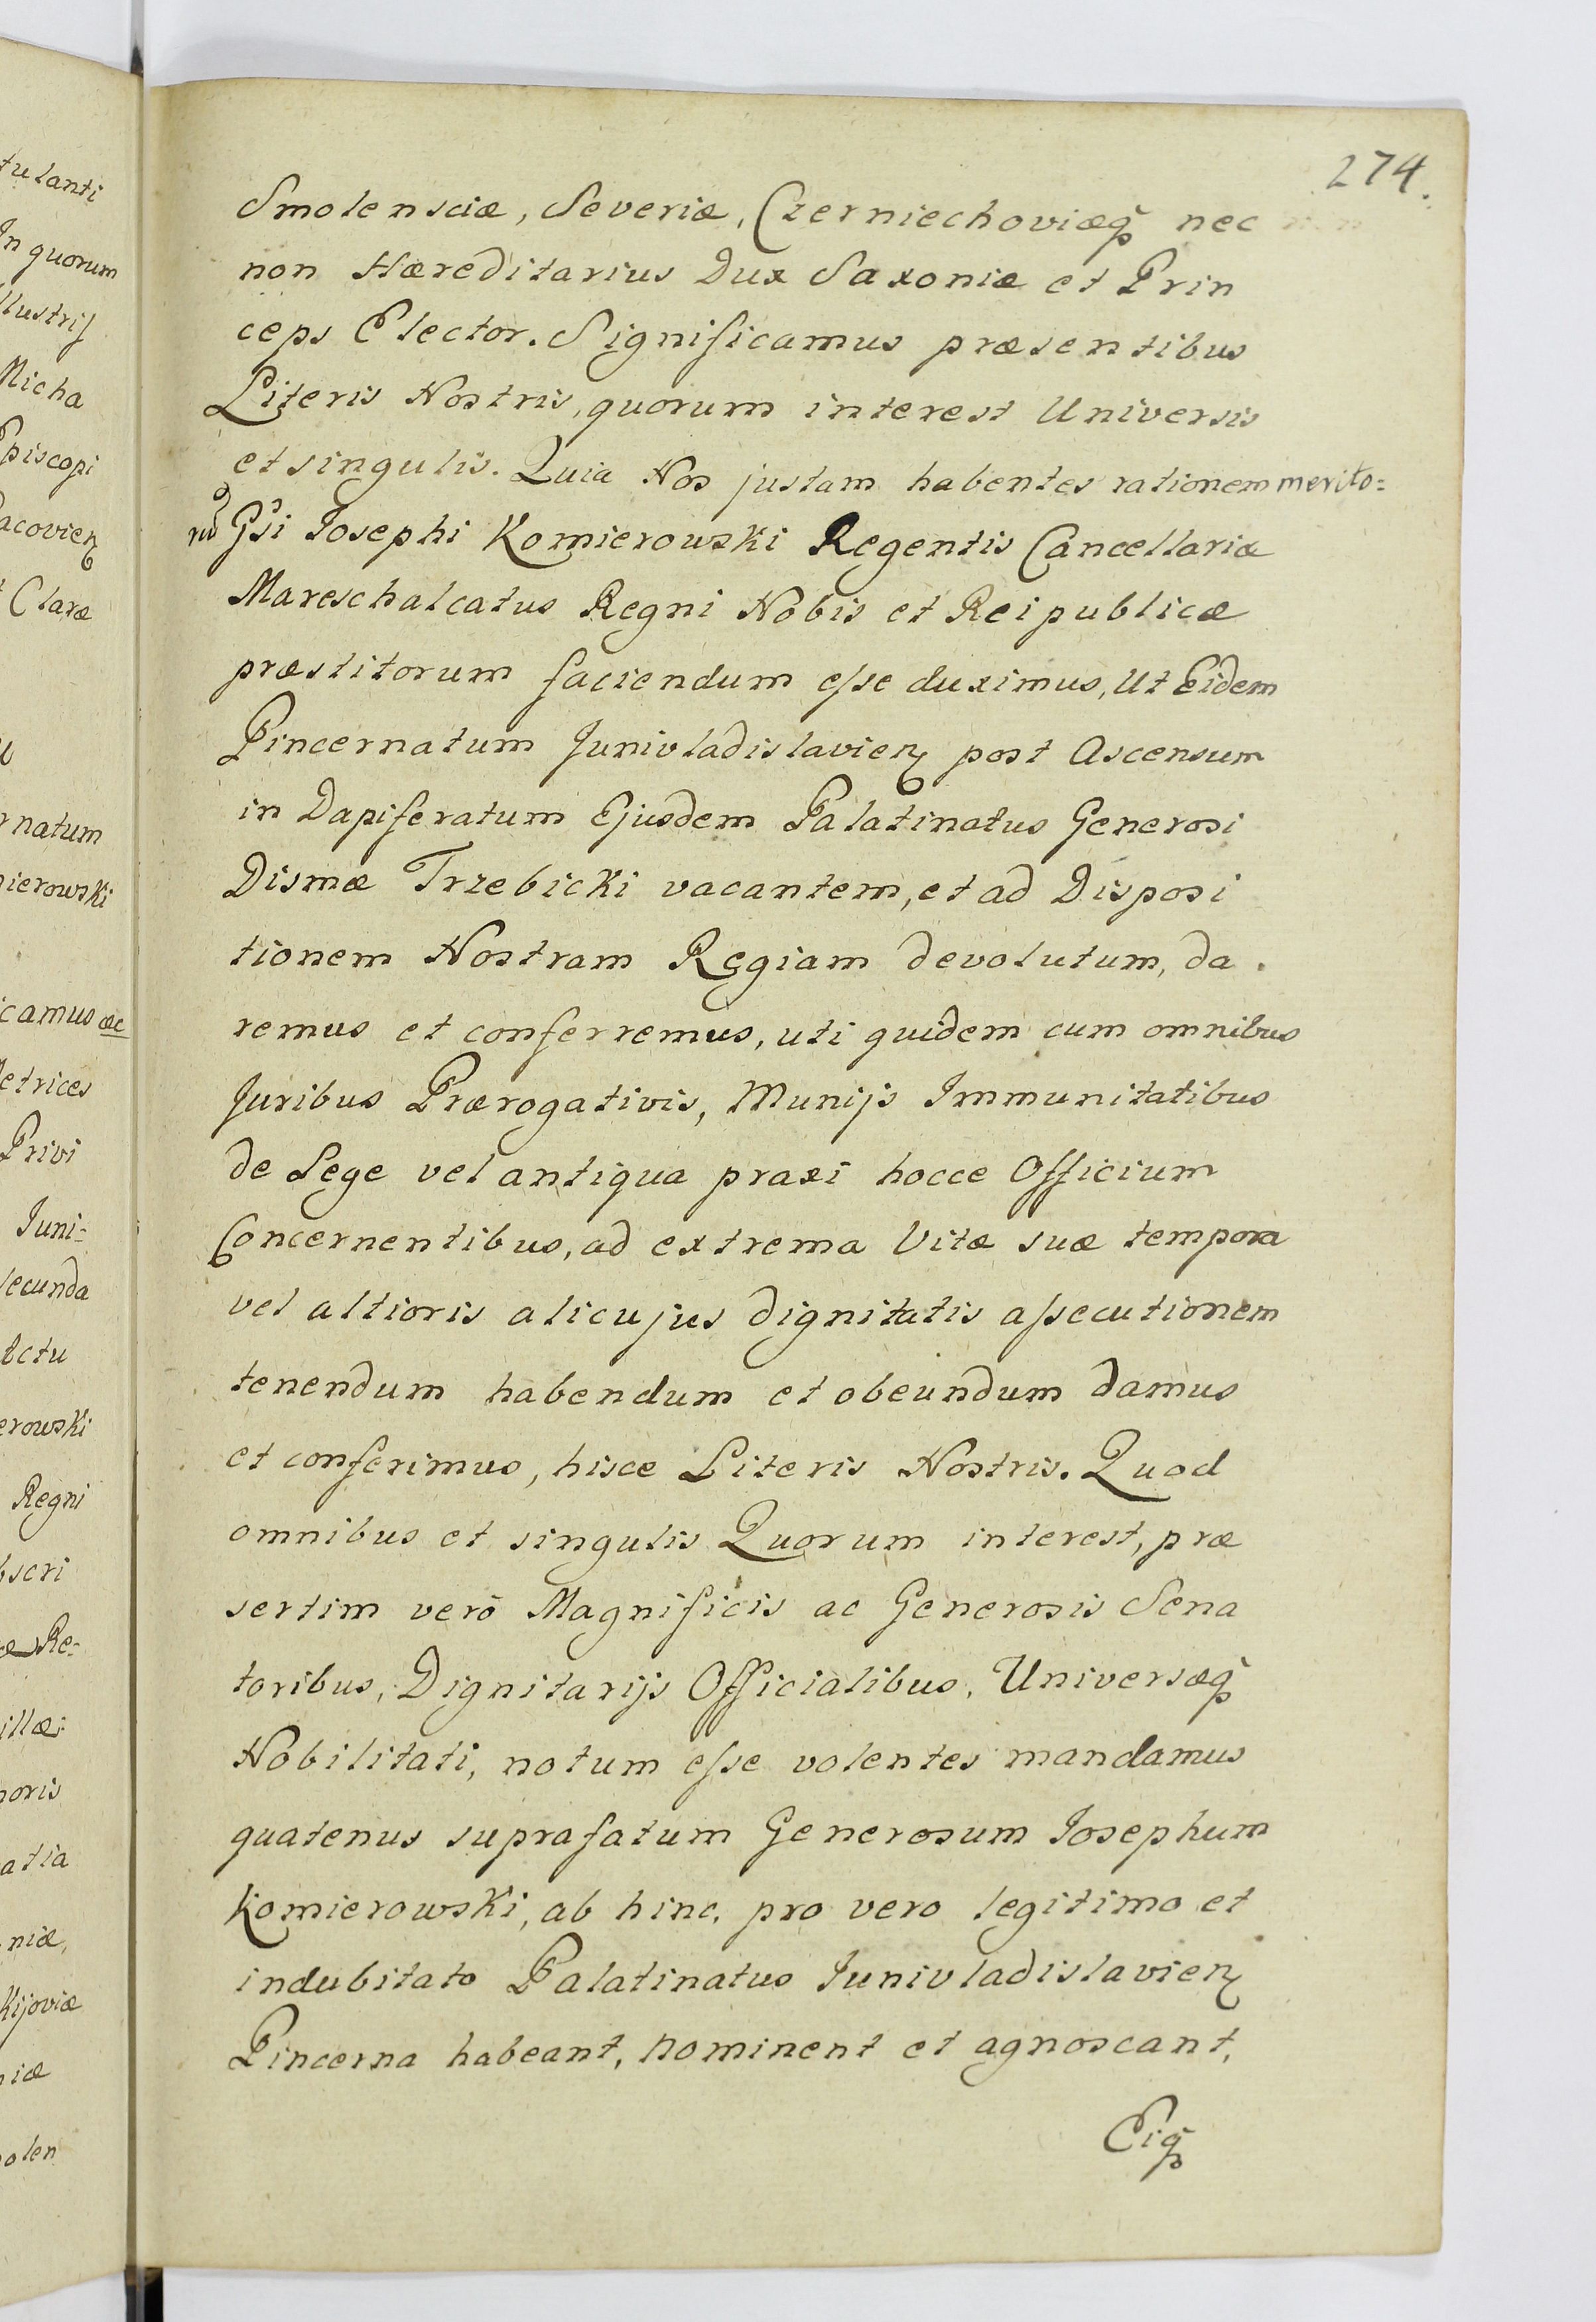 274.
Smolensciæ, Severiæ, Czerniechoviæq̃ nec
non Hæreditarius Dux Saxoniæ et Prin
ceps Elector. Significamus præsentibus
Literis Nostris, quorum interest Universis
et singulis. Quia Nos justam habentes rationem merito=
rũ Gsi Josephi Komierowski Regentis Cancellariæ
Mareschalcatus Regni Nobis et Reipublicæ
præstitorum faciendum esse duximus, Ut Eidem
Pincernatum Junivladislavien post Ascensum
in Dapiferatum Ejusdem Palatinatus Generosi
Dismæ Trzebicki vacantem, et ad Disposi
tionem Nostram Regiam devolutum, da.
remus et conferremus, uti quidem cum omnibus
Juribus Prærogativis, Munijs Immunitatibus
de Lege vel antiqua praxi hocce Officium
Concernentibus, ad extrema Vitæ suæ tempora
vel altioris alicujus dignitatis assecutionem
tenendum habendum et obeundum damus
et conferimus, hisce Literis Nostris. Quod
omnibus et singulis Quorum interest, præ
sertim verò Magnificis ac Generosis Sena
toribus, Dignitarijs Officialibus, Universæq̃
Nobilitati, notum esse volentes mandamus
quatenus suprafatum Generosum Josephum
Komierowski, ab hinc, pro vero legitimo et
indubitato Palatinatus Junivladislavien
Pincerna habeant, nominent et agnoscant,
Eiq̃
tulanti
In quorum
Micha
Episcopi
Claræ
natum
ierowski
camus æc
etrices
Privi
Juni=
ecunda
erowski
Regni
Re=
oris
atia
niæ,
Kijoviæ
olen